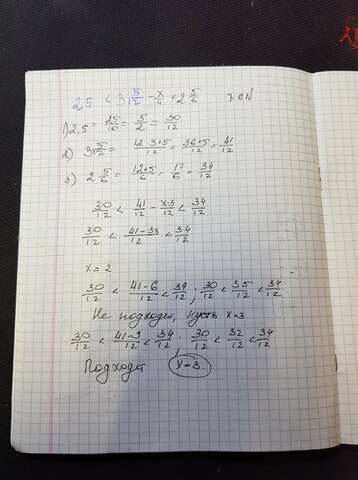 2,5 < 3 5/12 - x/4 < 2 5/6 x ∈ N
1) 2,5 = 25/10 = 5/2 = 30/12
2) 3 5/12 = 12·3+5/12 = 36+5/12 = 41/12
3) 2 5/6 = 12+5/6 = 17/6 = 34/12
30/12 < 41/12 - x·3/12 < 34/12
30/12 < 41-3x/12 < 34/12
x = 2
30/12 < 41-6/12 < 34/12 ; 30/12 < 35/12 < 34/12
Не подходит, пусть x=3
30/12 < 41-9/12 < 34/12 ; 30/12 < 32/12 < 34/12
Подходит x=3.